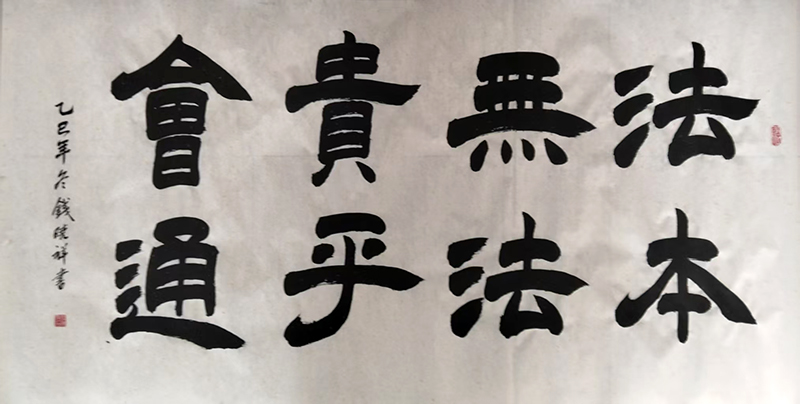 法本
無法
貴乎
會通
乙巳年冬錢曉祥書